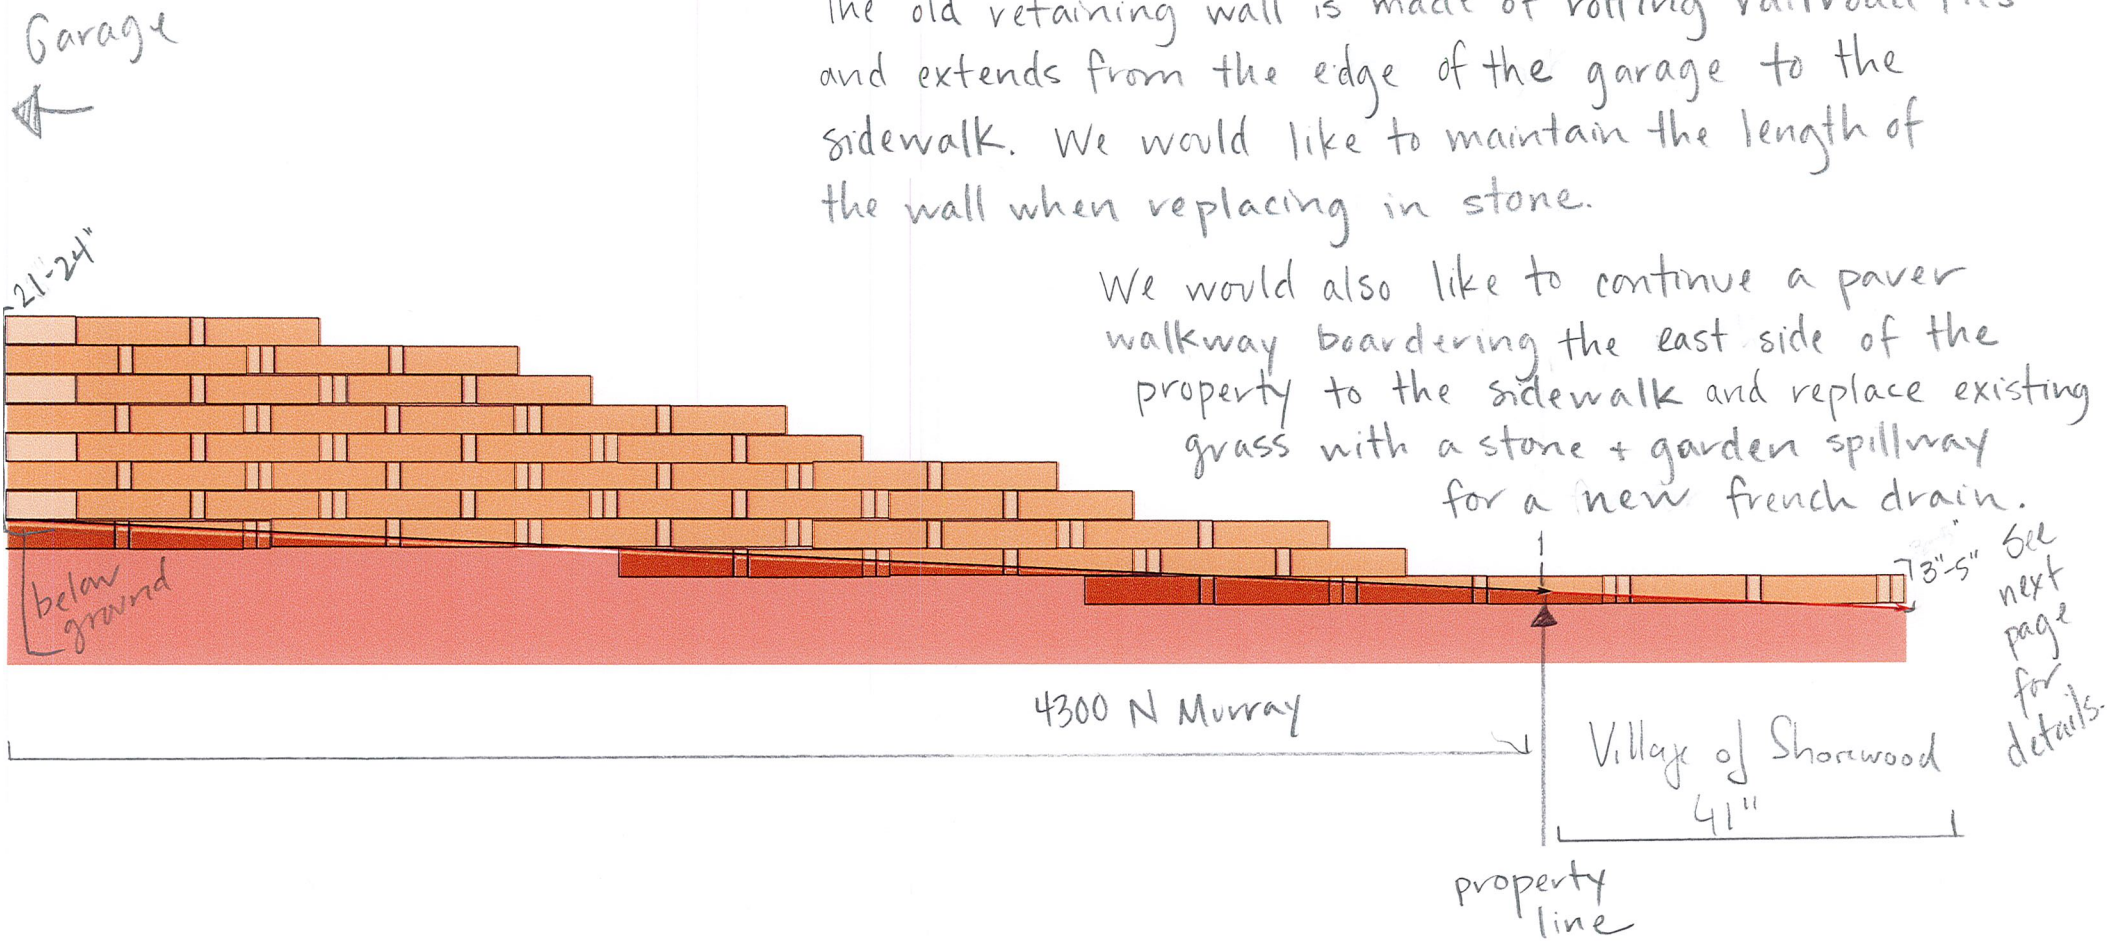 Garage
The old retaining wall is made of rotting railroad ties
and extends from the edge of the garage to the
sidewalk. We would like to maintain the length of
the wall when replacing in stone.
21-24"
We would also like to continue a paver
walkway boardering the east side of the
property to the sidewalk and replace existing
grass with a stone + garden spillway
for a new french drain.
below
ground
3"-5"
See
next
page
for
details.
4300 N Murray
Village of Shorewood
41"
property
line